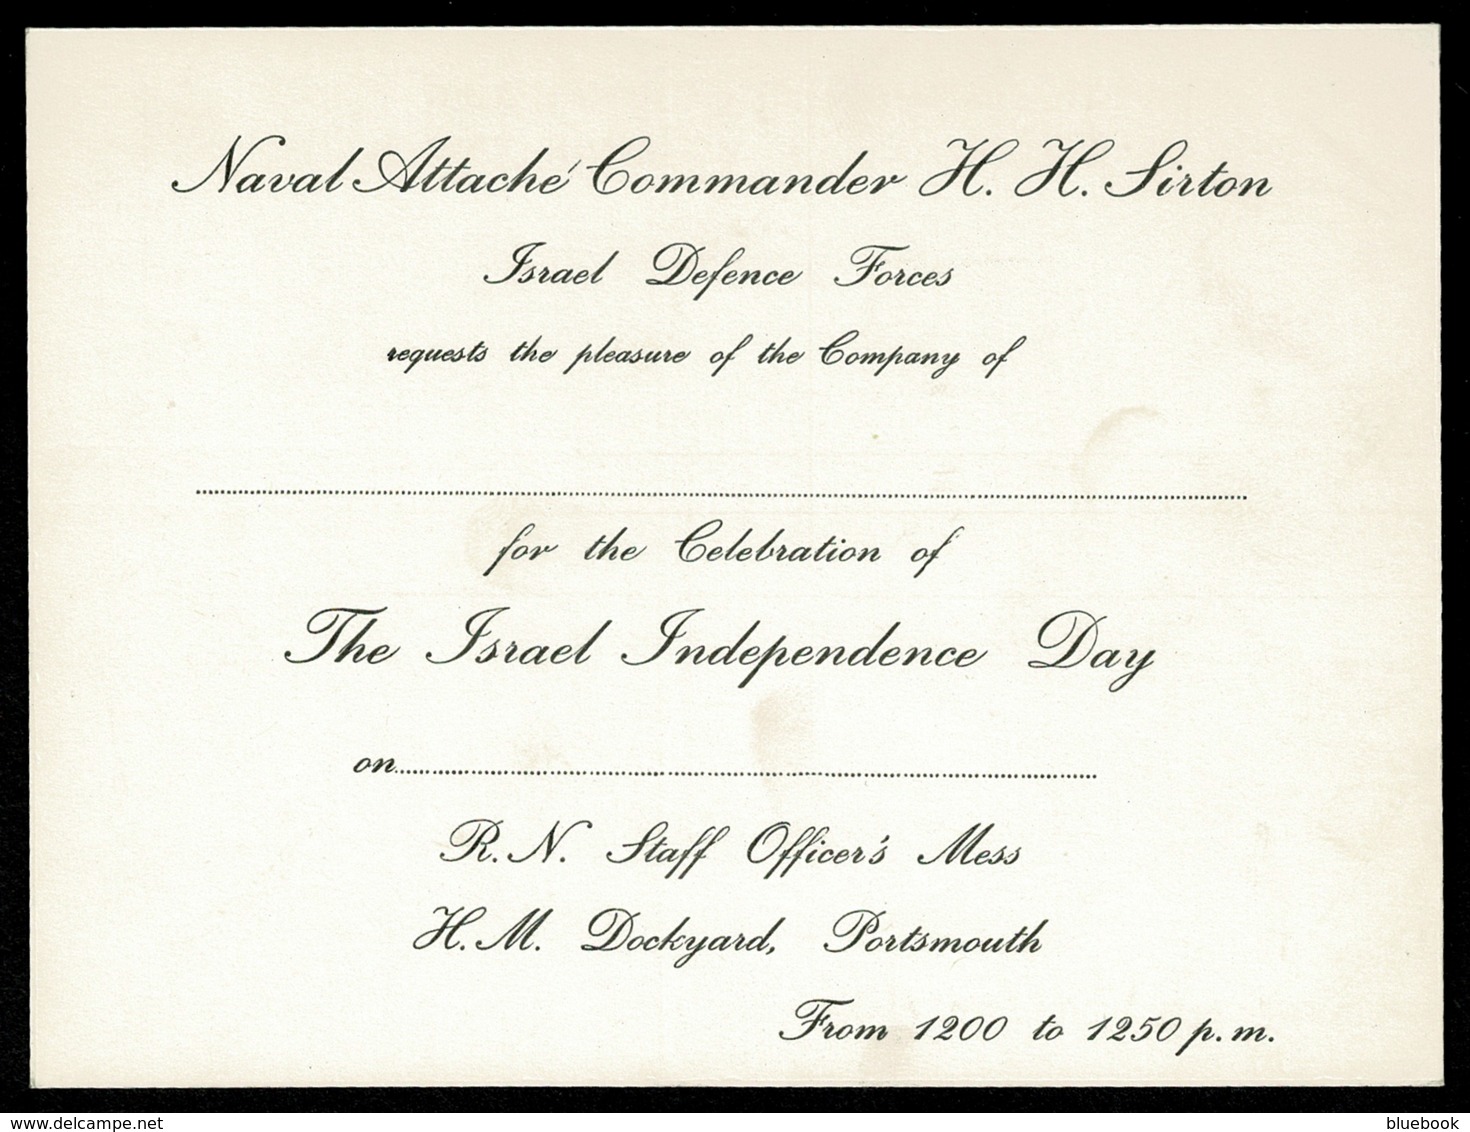 Naval Attaché Commander H. H. Sirton
Israel Defence Forces
requests the pleasure of the Company of
for the Celebration of
The Israel Independence Day
on
R. N. Staff Officer's Mess
H. M. Dockyard, Portsmouth
From 1200 to 1250 p. m.
delcampe.net
bluebook